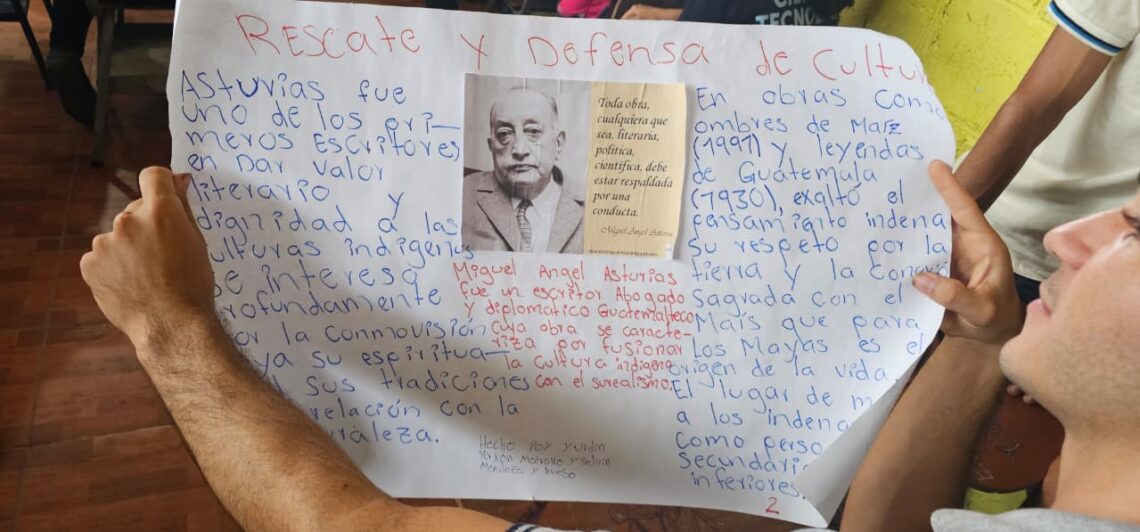 Rescate y Defensa de Cultu
Asturias fue
uno de los pri-
meros Escritores
en Dar valor
literario y
dignidad a las
ulturas indígenas
se interesa
rofundamente
or la Conmovisión
ya su espiritua-
sus tradiciones
relación con la
raleza.
Toda obra,
cualquiera que
sea, literaria,
política,
científica, debe
estar respaldada
por una
conducta.
Miguel Angel Asturias
Miguel Angel Asturias
fue un escritor Abogado
y diplomatico Guatemalteco
cuya obra se caracte-
riza por fusionar
la cultura indigena
con el surealismo.
Hecho por Yurdin
Mendoza y
En obras Como
ombres de Maíz
(1991) y leyendas
de Guatemala
(1930), exaltó el
pensamiento indena
Su respeto por la
tierra y la
Sagrada con el
Maís que para
Los Mayas es el
origen de la vida
El lugar de m
a los indena
Como perso
Secundari
inferiores.
2
TECNOL